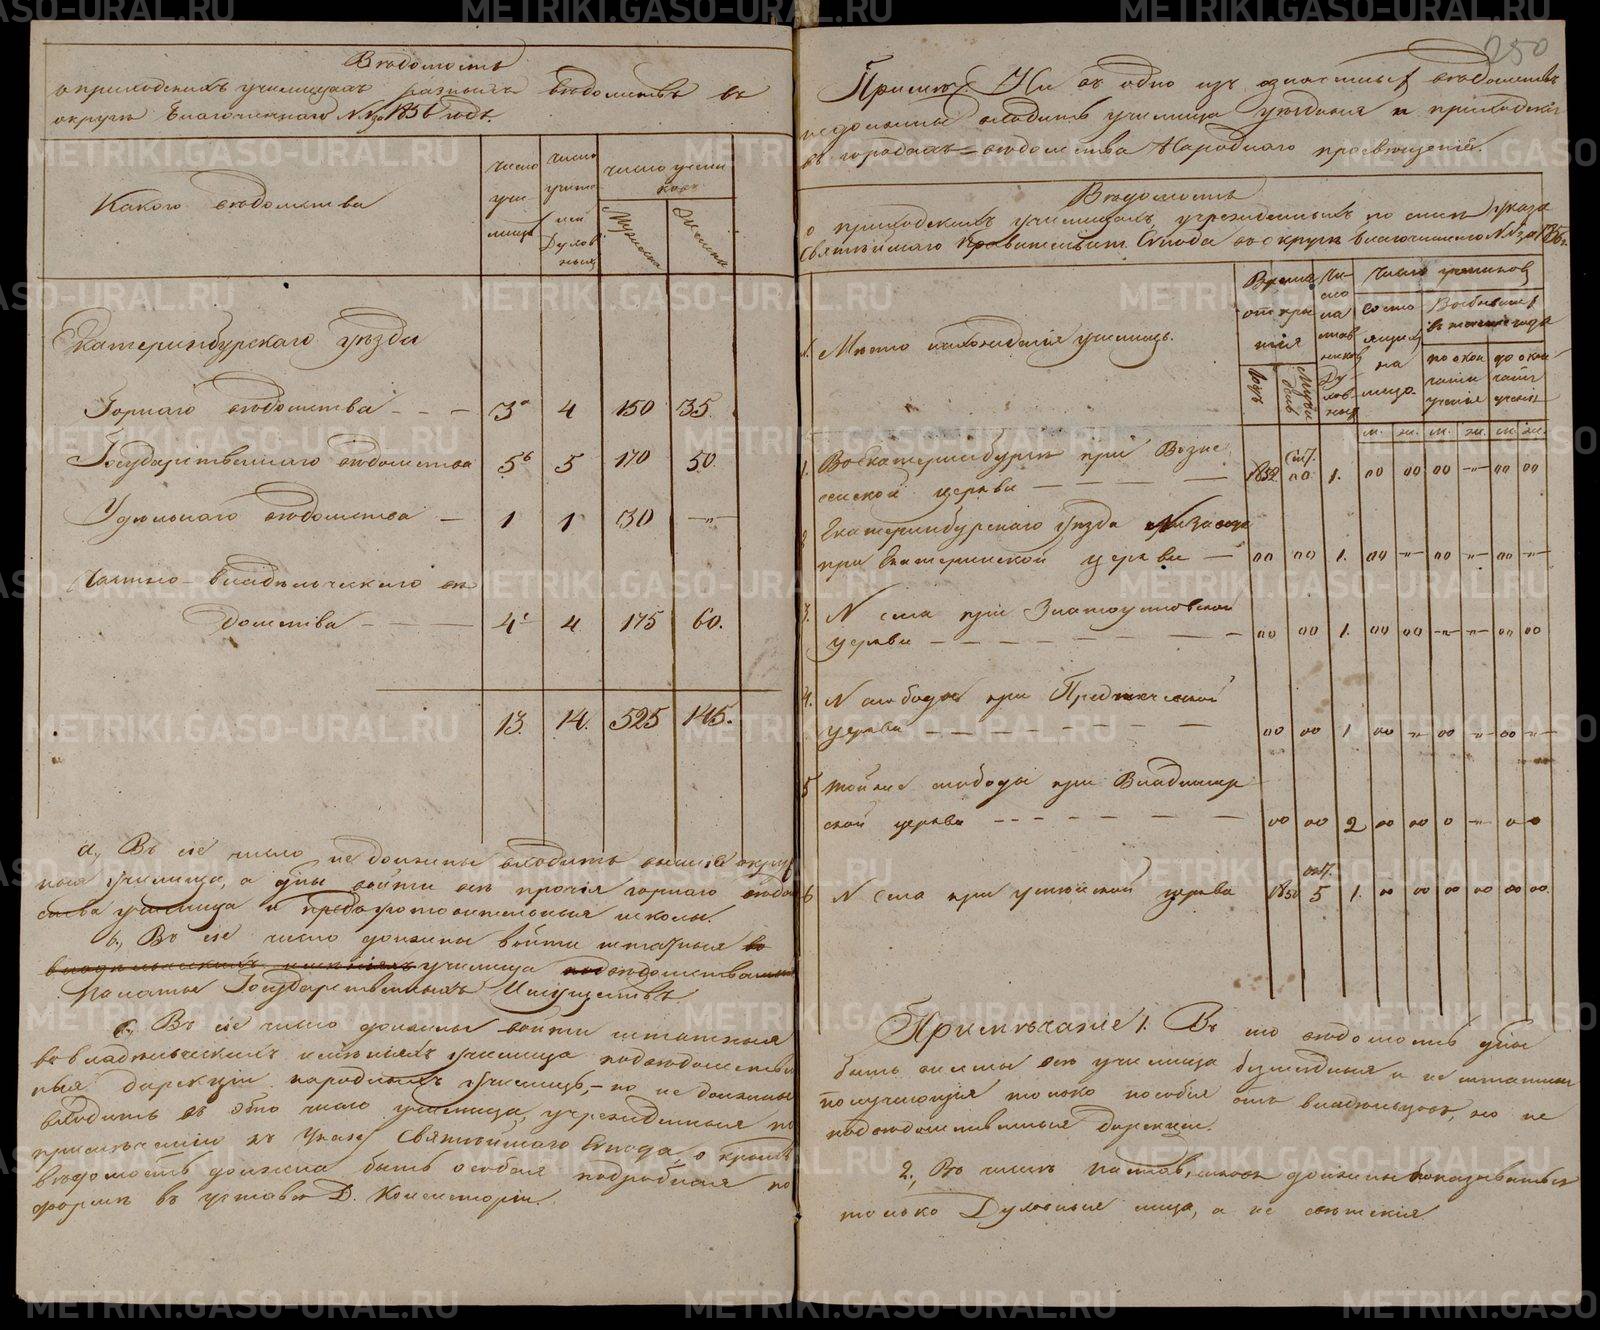 Вѣдомость
о приходскихъ училищахъ разныхъ вѣдомствъ въ
округѣ Благочиннаго N. за 1856 годъ.
Какого вѣдомства
число учи лищъ
число учите лей Духов ныхъ
число учени ковъ
Мужеска
Женска
Екатеринбургскаго уѣзда
Горнаго вѣдомства - - - 3а 4 150 35.
Государственнаго вѣдомства 5б 5 170 50.
Удѣльнаго вѣдомства — 1 1 30 -"-
Частно-владѣльческаго вѣ
домства - - - 4с 4 175 60.
13. 14. 525 145.
а., Въ сіе число не должны входить
училища, а войти всѣ прочія горнаго вѣдом
ства училища и предуготовительныя школы.
б., Въ сіе число должны войти штатныя во
владѣльческихъ имѣніяхъ училища подвѣдомственныя
Палаты Государственныхъ Имуществъ.
с., Въ сіе число должны войти штатныя
во владѣльческихъ имѣніяхъ училища подвѣдомствен
ныя дирекціи народныхъ училищъ, - но не должны
входить въ это число училища, учрежденныя по
примѣчанію къ Указу Святѣйшаго Синода, о которыхъ
вѣдомость должна быть особая подробная по
формѣ въ уставѣ Д. Консисторіи.
250
Примѣч. Ни въ одно изъ означенныхъ вѣдомствъ
не должны входить училища уѣздныя и приходскія
въ городахъ - вѣдомства Народнаго просвѣщенія.
Вѣдомость
о приходскихъ училищахъ учрежденныхъ по силѣ указа
Святѣйшаго Правительств. Синода въ округѣ благочиннаго N. за 1856 г.
Мѣсто нахожденія училищъ.
Время откры тія
Годъ
Чи сло на став никовъ Ду хов ныхъ
Число учениковъ
состо ящихъ на лицо.
Выбывшихъ въ теченіе года
по окон чаніи ученія
до окон чанія ученія
м. ж. м. ж. м. ж.
1. Въ Екатеринбургѣ при Возне
сенской церкви — — — — 1852 Сент. 00 1. 00 00 00 -"- 00 00
2 Екатеринбургскаго уѣзда N. Завода
при Екатерининской церкви — 00 00 1. 00 -"- 00 -"- 00 -"-
3. N села при Златоустовской
церкви — — — — — 00 00 1. 00 00 -"- -"- 00 00
4. N слободы при Предтеченской
церкви — — — — — 00 00 1 00 -"- 00 -"- 00 -"-
5 той же слободы при Владимір
ской церкви — — — — 00 00 2 00 00 0 -"- 0 0
6 N Села при церкви 1850 окт. 5 1. 00 00 00 00 00 00.
Примѣчаніе 1. Въ сію вѣдомость должны
быть внесены всѣ училища безмездныя и не штатныя
получающія только пособія отъ владѣльцовъ, но не
подвѣдомственныя дирекціи.
2., Въ числѣ наставниковъ должны показываться
только Духовныя лица, а не свѣтскія.